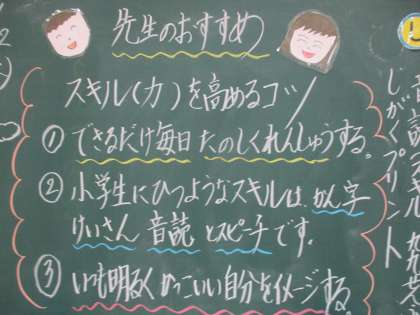 先生のおすすめ
スキル(力)を高めるコツ
① できるだけ毎日 たのしくれんしゅうする。
② 小学生にひつようなスキルは、かん字
けいさん 音読 とスピーチです。
③ いつも明るく かっこいい自分をイメージする。